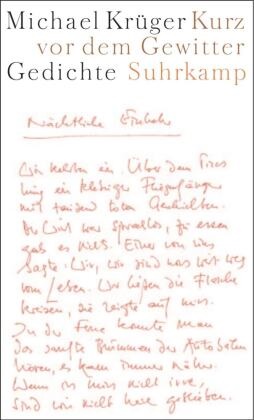 Michael Krüger Kurz
vor dem Gewitter
Gedichte Suhrkamp
Nächtliche Einkehr
Wir kehrten ein. Über dem Tresen
hing ein klebriger Fliegenfänger
mit tausend toten Geschichten.
Der Wirt war sprachlos, zu essen
gab es nichts. Einer von uns
sagte: Wir, wir sind nur weit weg
vom Leben. Wir ließen die Flasche
kreisen, sie zeigte auf mich.
In der Ferne konnte man
das sanfte Brummen der Autobahn
hören, es kam immer näher.
Wenn ich mich nicht irre,
sind wir nicht lange geblieben.